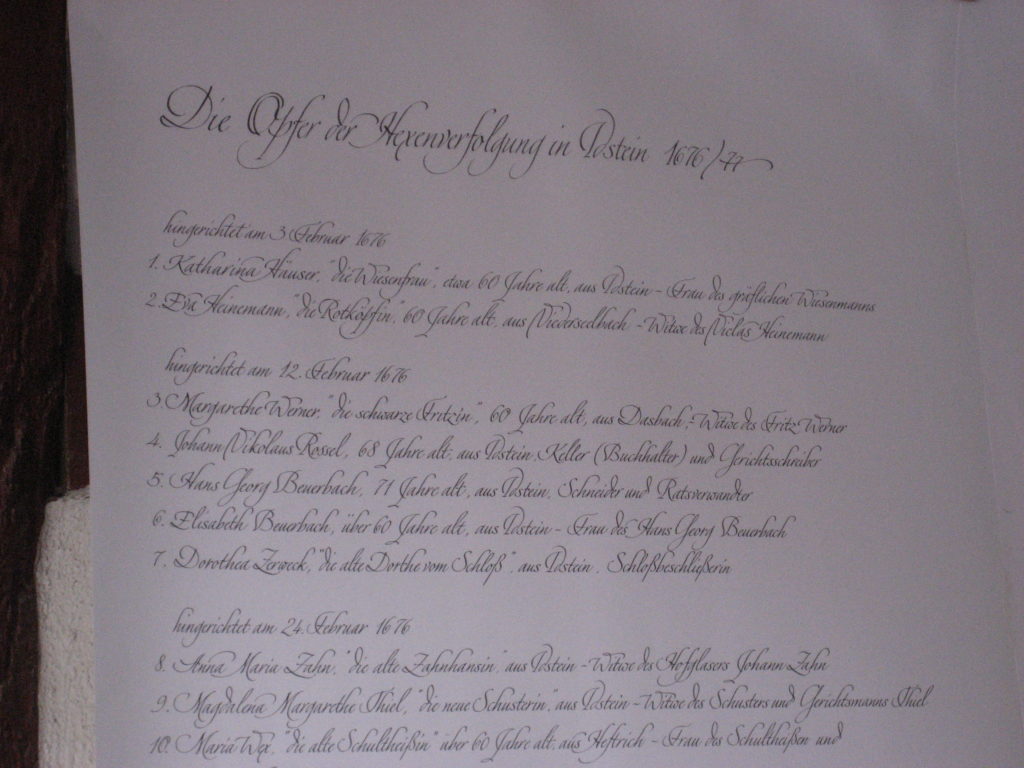 Die Opfer der Hexenverfolgung in Idstein 1676/77
hingerichtet am 3. Februar 1676
1. Katharina Häuser, "die Wiesenfrau", etwa 60 Jahre alt, aus Idstein - Frau des gräflichen Wiesenmanns
2. Eva Heinemann, "die Rotköpfin", 60 Jahre alt, aus Niederselbach - Witwe des Niclas Heinemann
hingerichtet am 12. Februar 1676
3. Margarethe Werner, "die schwarze Fritzin", 60 Jahre alt, aus Dasbach,- Witwe des Fritz Werner
4. Johann Nikolaus Rossel, 68 Jahre alt, aus Idstein, Keller (Buchhalter) und Gerichtsschreiber
5. Hans Georg Beuerbach, 71 Jahre alt, aus Idstein, Schneider und Ratsverwandter
6. Elisabeth Beuerbach, über 60 Jahre alt, aus Idstein - Frau des Hans Georg Beuerbach
7. Dorothea Zerweck, "die alte Dorthe vom Schloß", aus Idstein, Schloßbeschließerin
hingerichtet am 24. Februar 1676
8. Anna Maria Zahn, "die alte Zahnhansin", aus Idstein - Witwe des Hofglasers Johann Zahn
9. Magdalena Margarethe Thiel, "die neue Schusterin", aus Idstein - Witwe des Schusters und Gerichtsmanns Thiel
10. Maria Wex, "die alte Schultheißin" über 60 Jahre alt, aus Heftrich - Frau des Schultheißen und